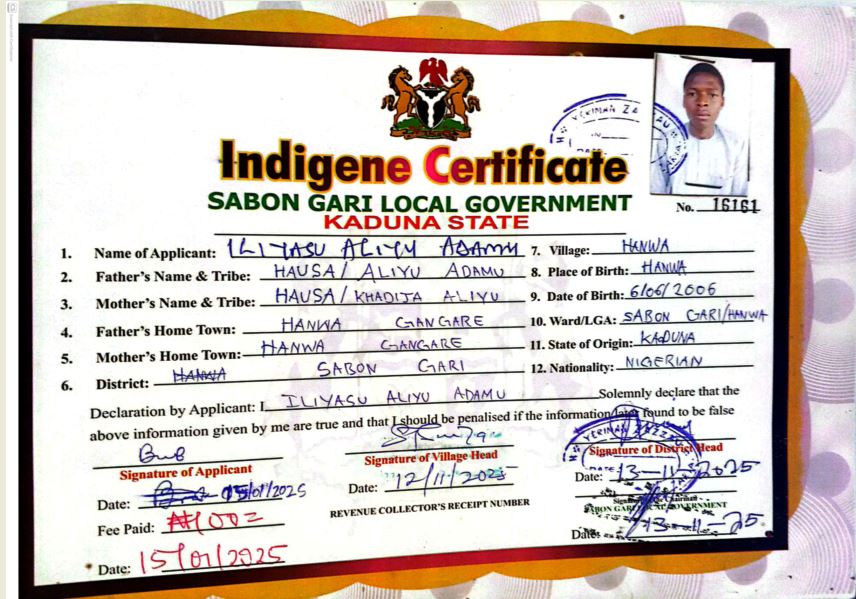 Indigene Certificate
SABON GARI LOCAL GOVERNMENT
KADUNA STATE
No. 16161
1. Name of Applicant: ILIYASU ALIYU ADAMU
2. Father's Name & Tribe: HAUSA/ ALIYU ADAMU
3. Mother's Name & Tribe: HAUSA/ KHADIJA ALIYU
4. Father's Home Town: HANWA GANGARE
5. Mother's Home Town: HANWA GANGARE
6. District: HANWA SABON GARI
7. Village: HANWA
8. Place of Birth: HANWA
9. Date of Birth: 6/06/2006
10. Ward/LGA: SABON GARI/HANWA
11. State of Origin: KADUNA
12. Nationality: NIGERIAN
Declaration by Applicant: I ILIYASU ALIYU ADAMU Solemnly declare that the
above information given by me are true and that I should be penalised if the information later found to be false
Signature of Applicant
Date: 15/01/2025
Fee Paid: ₦1,002=
Date: 15/01/2025
Signature of Village Head
Date: 12/11/2025
REVENUE COLLECTOR'S RECEIPT NUMBER
YERIMAN ZAZZAU
Signature of District Head
Date: 13-11-2025
SABON GARI LOCAL GOVERNMENT
Date: 13-11-25